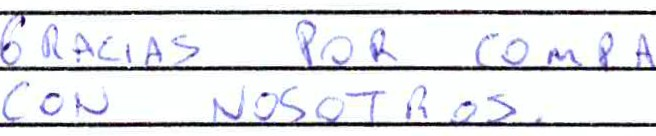 GRACIAS POR COMPA
CON NOSOTROS.